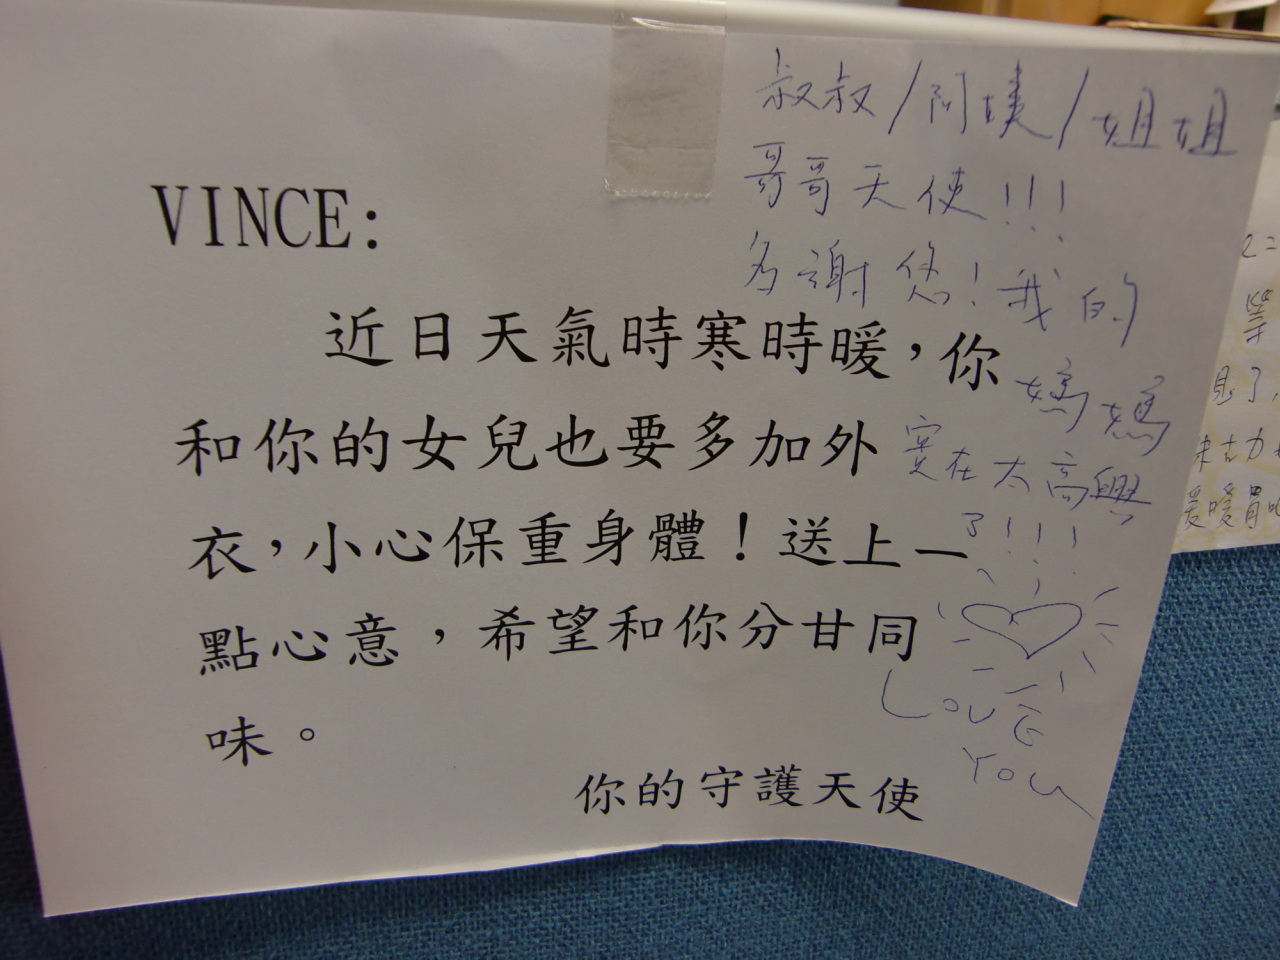 VINCE:
近日天氣時寒時暖，你
和你的女兒也要多加外
衣，小心保重身體！送上一
點心意，希望和你分甘同
味。
你的守護天使
叔叔/阿㜑/姐姐
哥哥天使!!!
多謝您!我的
媽媽
實在太高興
了!!!
LOVE
YOU